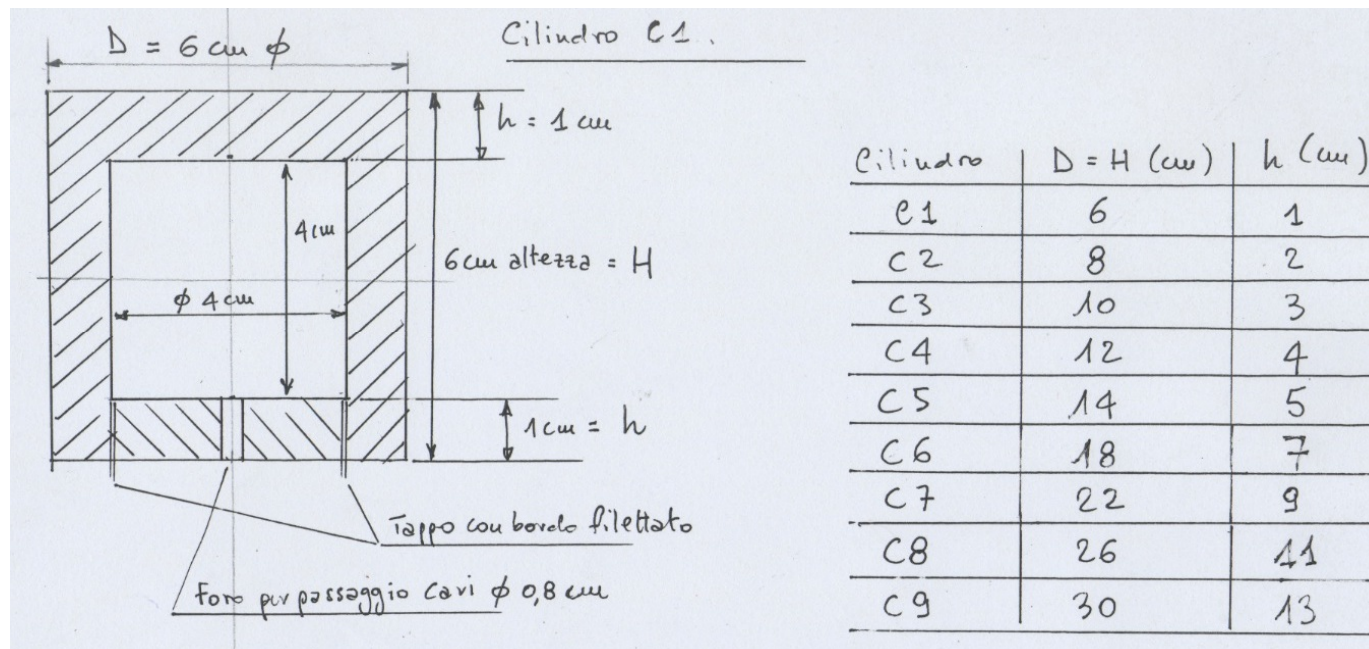 D = 6 cm ϕ
Cilindro C1.
h = 1 cm
4 cm
6 cm altezza = H
ϕ 4 cm
1 cm = h
Tappo con bordo filettato
Foro per passaggio cavi ϕ 0,8 cm
Cilindro D = H (cm) h (cm)
C1 6 1
C2 8 2
C3 10 3
C4 12 4
C5 14 5
C6 18 7
C7 22 9
C8 26 11
C9 30 13